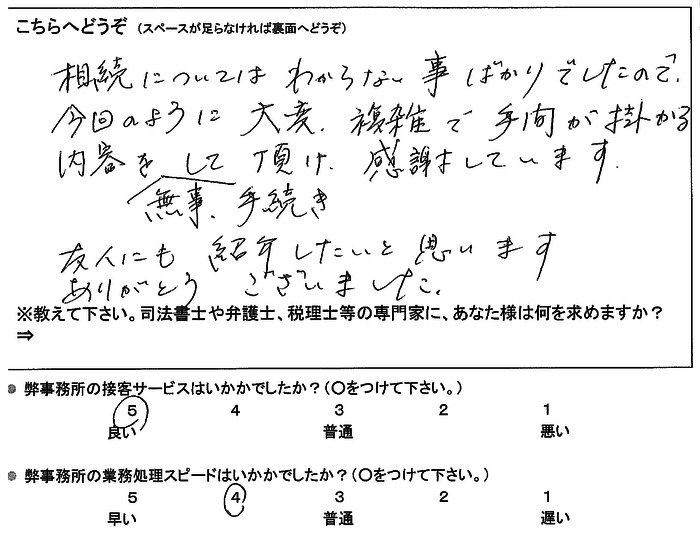 こちらへどうぞ （スペースが足らなければ裏面へどうぞ）
相続については わからない 事 ばかりでしたので、
今回のように 大変、複雑で 手間が 掛かる
内容を して 頂け、感謝しています。
無事、手続き
友人にも 紹介したいと 思います
ありがとう ございました。
※教えて下さい。司法書士や弁護士、税理士等の専門家に、あなた様は何を求めますか？
⇒
● 弊事務所の接客サービスはいかかでしたか？（〇をつけて下さい。）
5 4 3 2 1
良い 普通 悪い
● 弊事務所の業務処理スピードはいかかでしたか？（〇をつけて下さい。）
5 4 3 2 1
早い 普通 遅い